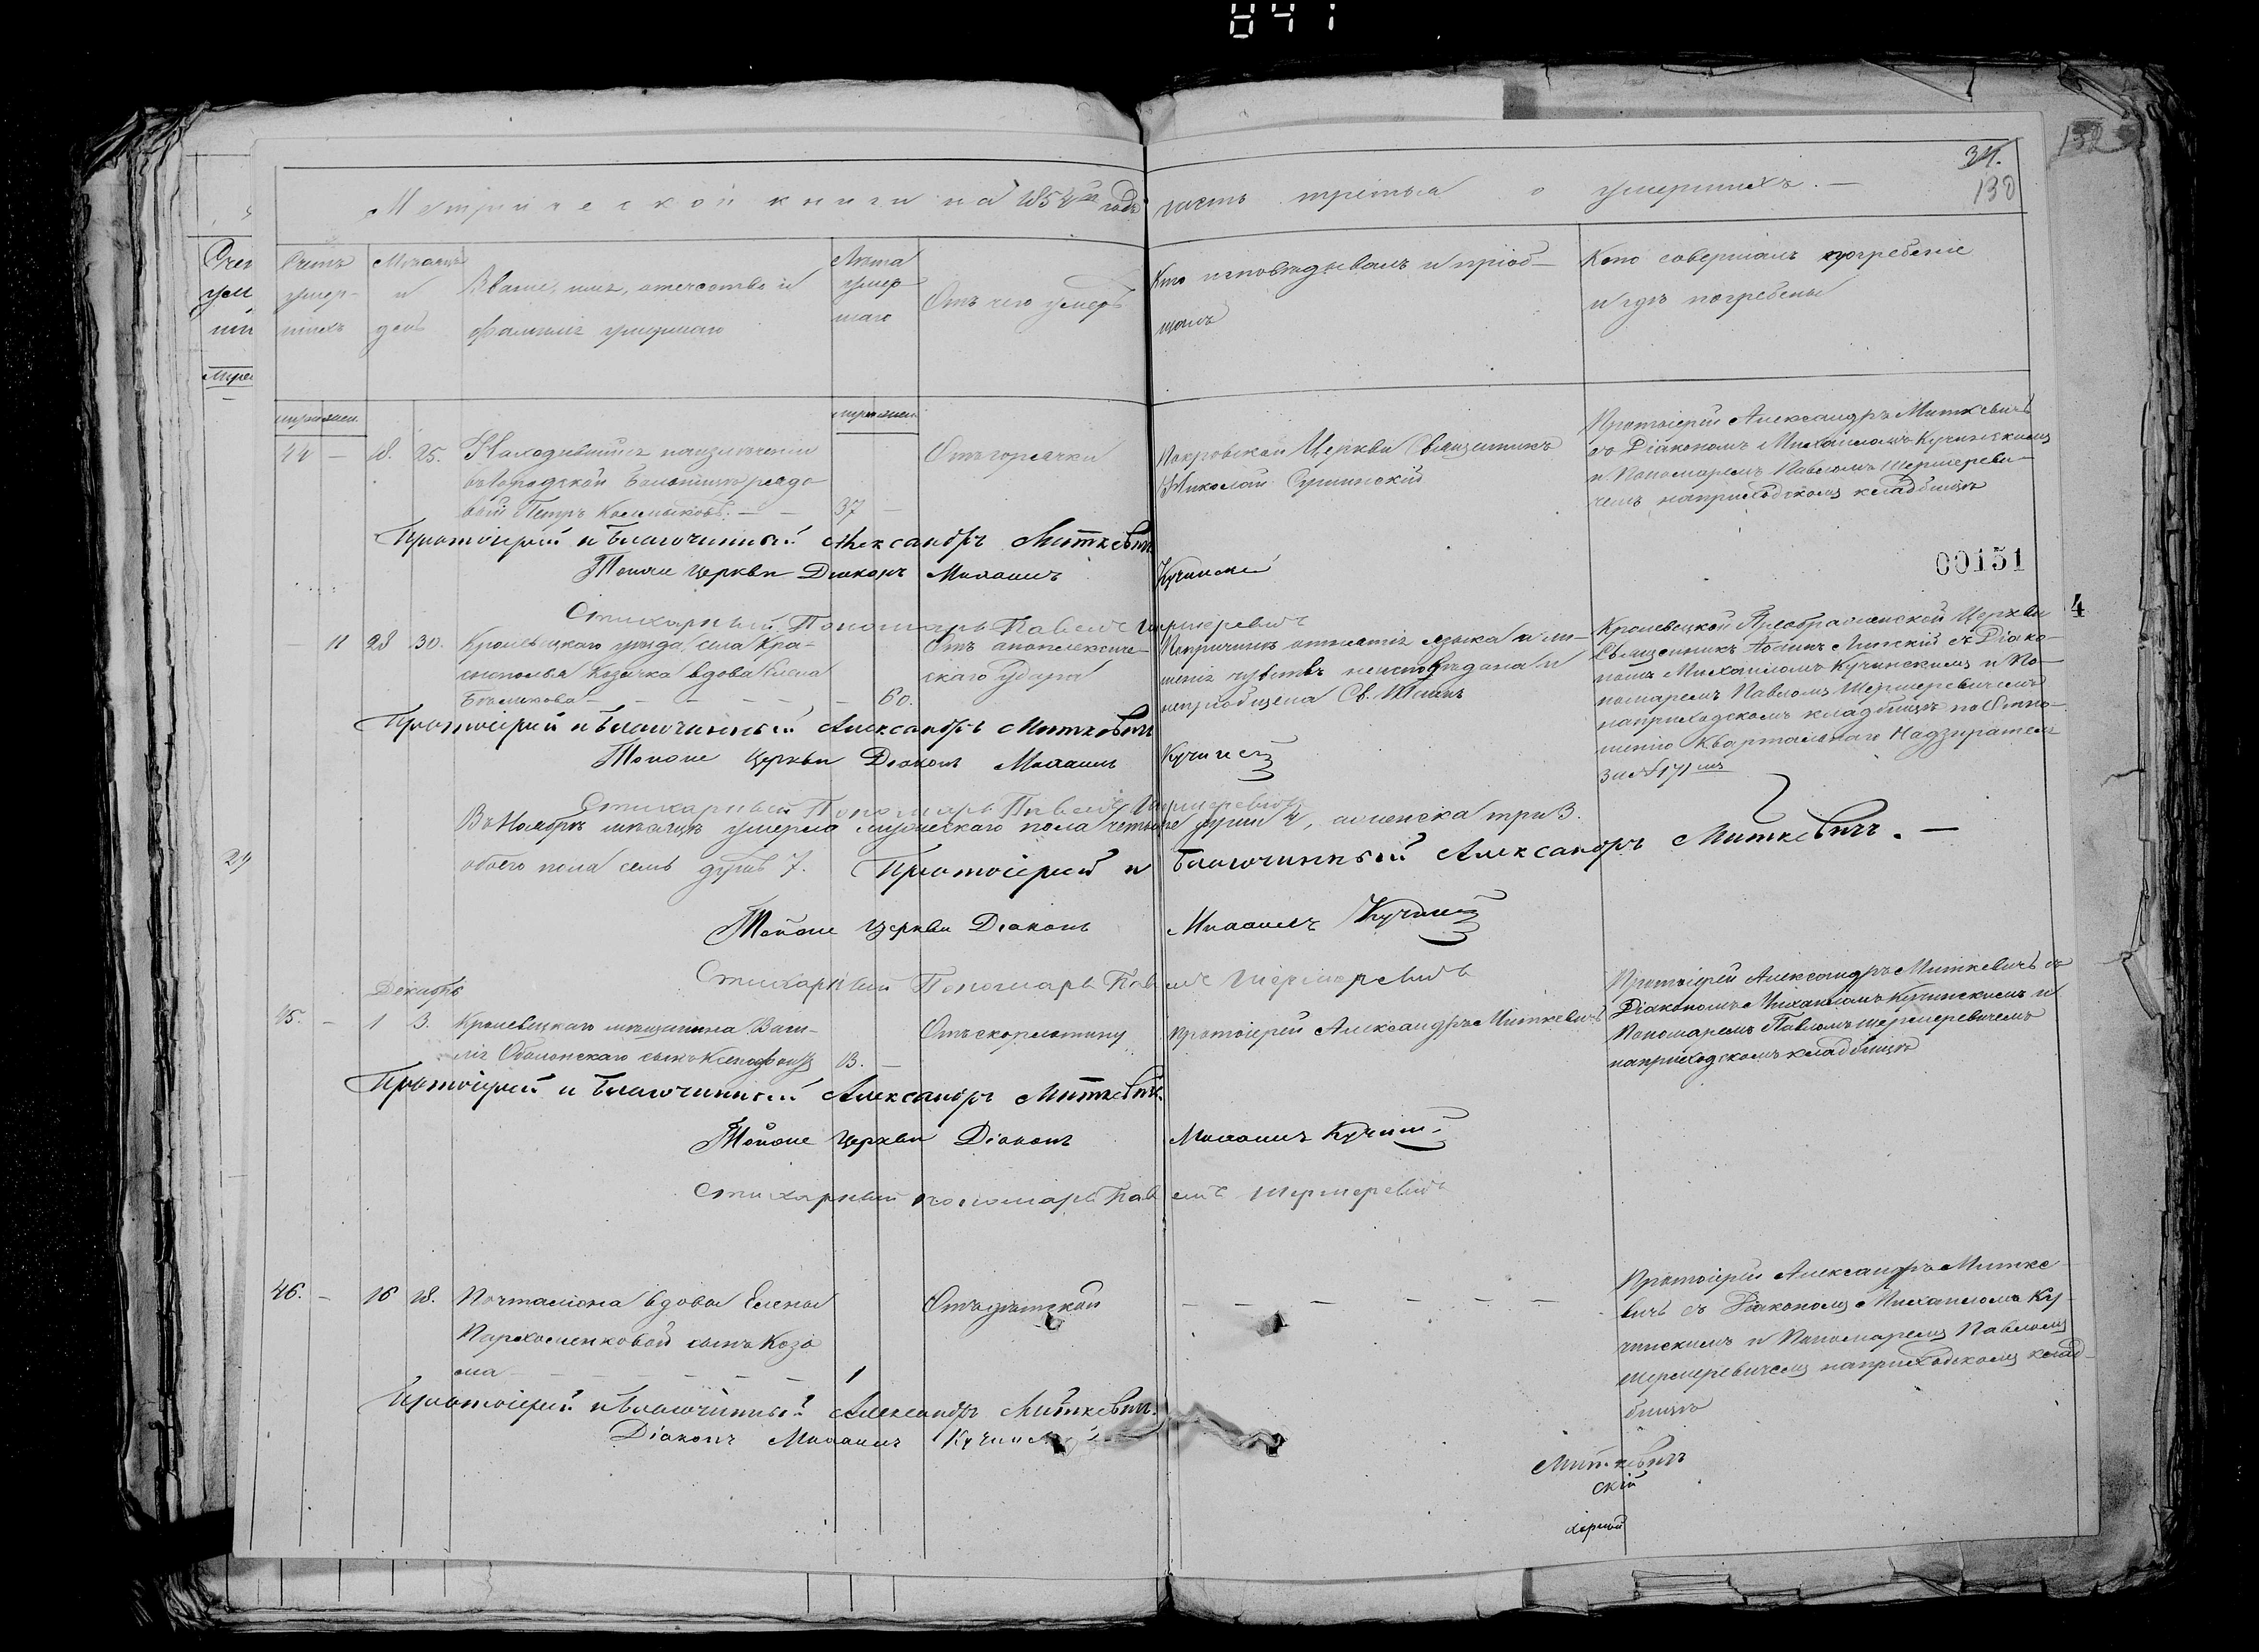 841
34.
130
132
Метрической книги на 1854й годъ часть третья о умершихъ.
Счетъ умер-шихъ
Мѣсяцъ и день
Званіе, имя, отечество и фамилія умершаго
Лѣта умер шаго
Отъ чего умеръ
Кто исповѣдывалъ и пріоб-щалъ
Кто совершалъ погребеніе и гдѣ погребены
44 — 18. 25. Находившійся на излеченіи
въ Городской Больницѣ рядо
вой Петръ Калмыковъ. — — 37 —
Отъ горячки
Покровской Церкви Священникъ
Николай
Протоіерей Александръ Миткевичъ
съ Діакономъ Михаиломъ Кучинскимъ
и Пономаремъ Павломъ Шермереви-
чемъ на приходскомъ кладбищѣ
Протоіерей и Благочинный Александръ Миткевичъ
Тойже Церкви Діаконъ Михаилъ Кучинскій
00151
4
Стихарный Пономарь Павелъ Шермеревичъ
— 11 28 30. Кролевецкаго уѣзда, села Кра-
Козачка вдова Елена
60.
Отъ апоплексиче-
скаго удара
По причинѣ отнятія языка и ли-
шенія чувствъ неисповѣдана и
непріобщена Св. Тайнъ
Кролевецкой Преображенской Церкви
Священникъ съ Діако-
номъ Михаиломъ Кучинскимъ и По-
номаремъ Павломъ Шермеревичемъ
на приходскомъ кладбищѣ по Отно-
шенію Квартальнаго Надзирателя
за № 171мъ
Протоіерей и Благочинный Александръ Миткевичъ
Тойже Церкви Діаконъ Михаилъ Кучинскій
Стихарный Пономарь Павелъ Шермеревичъ
Въ Ноябрѣ мѣсяцѣ умерло мужескаго пола четыре души 4, а женска три 3.
обоего пола семь душъ 7.
Протоіерей и Благочинный Александръ Миткевичъ. —
Тойже Церкви Діаконъ Михаилъ Кучинскій
Стихарный Пономарь Павелъ Шермеревичъ
Декабрь
45. — 1 3. Кролевецкаго мѣщанина Васи-
лія Оболонскаго сынъ Ксенофонтъ 13. —
Отъ скорлатину
Протоіерей Александръ Миткевичъ
Протоіерей Александръ Миткевичъ съ
Діакономъ Михаиломъ Кучинскимъ и
Пономаремъ Павломъ Шермеревичемъ
на приходскомъ кладбищѣ
Протоіерей и Благочинный Александръ Миткевичъ.
Тойже Церкви Діаконъ Михаилъ Кучинскій
Стихарный Пономарь Павелъ Шермеревичъ
46. — 16 18. Почталіона вдовы Елены
Пархоменковой сынъ Козь
ма — — — — — — 1
Отъ дѣтской
— — — — — —
Протоіерей Александръ Митке
вичъ съ Діакономъ Михаиломъ Ку-
чинскимъ и Пономаремъ Павломъ
Шермеревичемъ на приходскомъ клад-
бищѣ
Протоіерей и Благочинный Александръ Миткевичъ.
Діаконъ Михаилъ Кучинскій
Миткевичъ
скій
харный